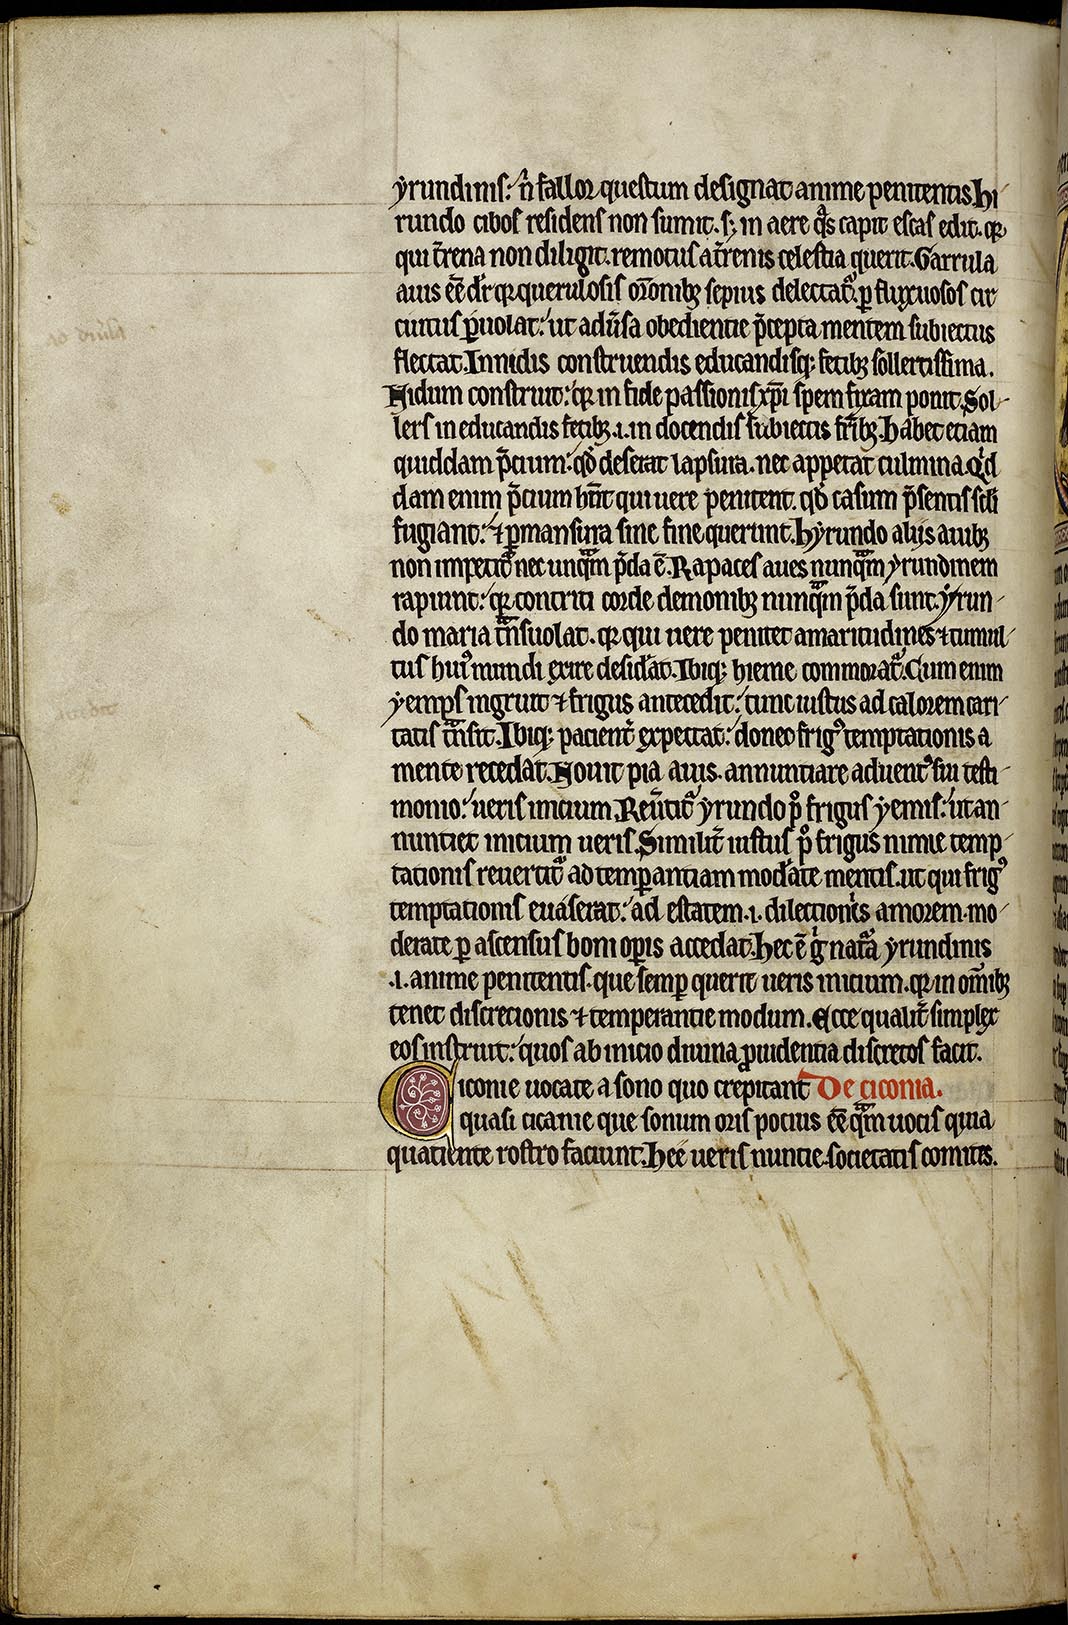 yrundinis: ñ fallor questum designat anime penitentis. Hi
rundo cibos residens non sumit. s; in aere qͣs capit escas edit. qꝛ
qui t̄rena non diligit. remotus a t̄renis celestia querit. Garrula
auis eē dr̄ qꝛ querulosis or̄onibꝫ sepius delectatᷓ. ꝑ fluxuosos cir
cuitus ꝑuolat: ut aduͥsa obedientie p̄cepta mentem subiectus
flectat. In nidis construendis educandisqꝫ fetibꝫ sollertissima.
Nidum construit: qꝛ in fide passionis xp̄i spem fixam ponit. Sol
lers in educandis fetibꝫ .i. in docendis subiectis fr̄ibꝫ. Habet etiam
quiddam p̄cium: qd̓ deserat lapsura. nec appetat culmina. Qͥd
dam enim p̄cium hn̄t qui uere penitent. qd̓ casum p̄sentis scl̄i
fugiant: ⁊ ꝑmansura sine fine querunt. Hyrundo alijs auibꝫ
non impetitᷓ nec unqᷓm p̄da ē. Rapaces aues nunqᷓm yrundinem
rapiunt: qꝛ contriti corde demonibꝫ nunqᷓm p̄da sunt. yrun
do maria tᷓnsuolat. qꝛ qui uere penitet amaritudines ⁊ tumul
tus huiꝰ mundi exire desid̓at. Ibiqꝫ hieme commoratᷓ. Cum enim
yemps ingruit ⁊ frigus antecedit: tunc iustus ad calorem cari
tatis tᷓnsit. Ibiqꝫ pacient̓ expectat: donec frigꝰ temptationis a
mente recedat. Nouit pia auis. annuntiare aduentꝰ sui testi
monio: ueris inicium. Reu̓titᷓ yrundo pꝰ frigus yemis: ut an
nuntiet inicium ueris. Similit̓ iustus pꝰ frigus nimie temp
tationis reuertitᷓ ad temꝑantiam mod̓ate mentis. ut qui frigꝰ
temptationis euaserat: ad estatem .i. dilectionis amorem. mo
derate ꝑ ascensus boni oꝑis accedat. Hec ē gͥ natᷓa yrundinis
.i. anime penitentis. que semꝑ querit ueris inicium. qꝛ in om̄ibꝫ
tenet discrecionis ⁊ temperantie modum. Ecce qualit̓ simplex
eos instruit: quos ab inicio diuina ꝓuidentia discretos facit.
Ciconie uocate a sono quo crepitant De ciconia.
quasi cicanie que sonum oris potius eē qᷓm uocis quia
quatiente rostro faciunt. Hee ueris nuntie. societatis comites.